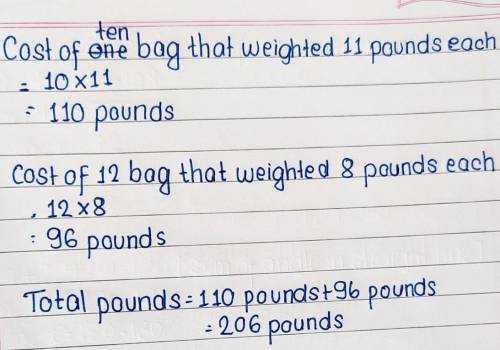 Cost of ten bag that weighted 11 pounds each
= 10×11
= 110 pounds
Cost of 12 bag that weighted 8 pounds each
. 12×8
= 96 pounds
Total pounds = 110 pounds + 96 pounds
= 206 pounds